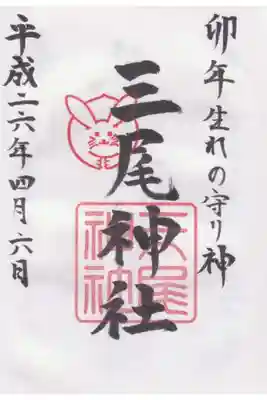 卯年生れの守り神
三尾神社
平成二六年四月六日